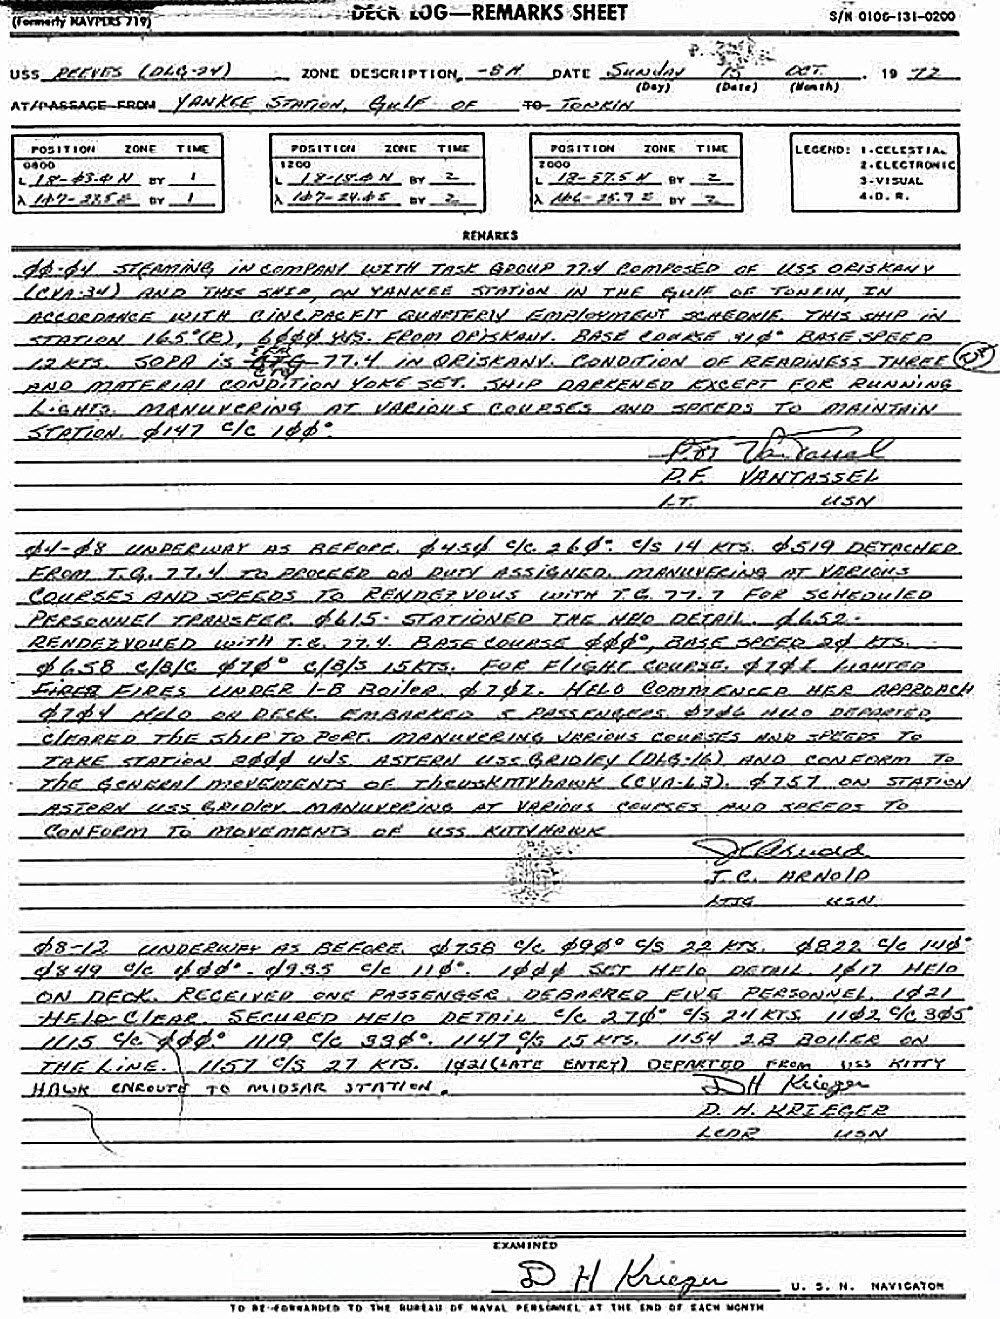 (Formerly NAVPERS 719)
DECK LOG—REMARKS SHEET
S/N 0106-131-0200
USS REEVES (DLG-24) ZONE DESCRIPTION -8H DATE Sunday 15 OCT. 1972
(Day) (Date) (Month)
AT/PASSAGE FROM YANKEE STATION, GULF OF TO TONKIN
POSITION ZONE TIME
0800
L 18-43.4 N BY 1
λ 107-23.5 E BY 1
POSITION ZONE TIME
1200
L 18-18.4 N BY 2
λ 107-24.0 BY 2
POSITION ZONE TIME
2000
L 18-57.5 N BY 2
λ 106-25.9 E BY 2
LEGEND: 1-CELESTIAL
2-ELECTRONIC
3-VISUAL
4-D. R.
REMARKS
ØØ-Ø4 STEAMING IN COMPANY WITH TASK GROUP 77.4 COMPOSED OF USS ORISKANY
(CVA-34) AND THIS SHIP, ON YANKEE STATION IN THE GULF OF TONKIN, IN
ACCORDANCE WITH CINCPACFLT QUARTERLY EMPLOYMENT SCHEDULE. THIS SHIP IN
STATION 165°(R), 6ØØØ YDS. FROM ORISKANY. BASE COURSE Ø1Ø° BASE SPEED
12 KTS. SOPA IS CTG 77.4 IN ORISKANY. CONDITION OF READINESS THREE
AND MATERIAL CONDITION YOKE SET. SHIP DARKENED EXCEPT FOR RUNNING
LIGHTS. MANUVERING AT VARIOUS COURSES AND SPEEDS TO MAINTAIN
STATION. Ø147 C/C 1ØØ°.
P.F. VanTassel
P.F. VANTASSEL
LT. USN
Ø4-Ø8 UNDERWAY AS BEFORE. Ø45Ø C/C 26Ø°. C/S 14 KTS. Ø519 DETACHED
FROM T.G. 77.4 TO PROCEED ON DUTY ASSIGNED. MANUVERING AT VARIOUS
COURSES AND SPEEDS TO RENDEZVOUS WITH T.G. 77.7 FOR SCHEDULED
PERSONNEL TRANSFER. Ø615- STATIONED THE HELO DETAIL. Ø652-
RENDEZVOUED WITH T.G. 77.4. BASE COURSE ØØØ°, BASE SPEED 2Ø KTS.
Ø658 C/B/C Ø7Ø° C/B/S 15 KTS. FOR FLIGHT COURSE. Ø7Ø2 LIGHTED
FIRER FIRES UNDER 1-B BOILER. Ø7Ø2. HELO COMMENCED HER APPROACH
Ø7Ø4 HELO ON DECK. EMBARKED 5 PASSENGERS. Ø7Ø6 HELO DEPARTED,
CLEARED THE SHIP TO PORT. MANUVERING VARIOUS COURSES AND SPEEDS TO
TAKE STATION 2ØØØ yds. ASTERN USS GRIDLEY (DLG-16) AND CONFORM TO
THE GENERAL MOVEMENTS OF THE USS KITTYHAWK (CVA-63). Ø757 ON STATION
ASTERN USS GRIDLEY. MANUVERING AT VARIOUS COURSES AND SPEEDS TO
CONFORM TO MOVEMENTS OF USS KITTYHAWK
J C Arnold
J.C. ARNOLD
LTJG USN
Ø8-12 UNDERWAY AS BEFORE. Ø758 C/C Ø9Ø° C/S 22 KTS. Ø822 C/C 14Ø°
Ø849 C/C ØØØ°. Ø935 C/C 11Ø°. 1ØØØ SET HELO DETAIL. 1Ø17 HELO
ON DECK. RECEIVED ONE PASSENGER. DEBARRED FIVE PERSONNEL. 1Ø21
HELO CLEAR. SECURED HELO DETAIL C/C 27Ø° C/S 24 KTS. 11Ø2 C/C 3Ø5°
1115 C/C ØØØ° 1119 C/C 33Ø°. 1147 C/S 15 KTS. 1154 2B BOILER ON
THE LINE. 1157 C/S 27 KTS. 1021 (LATE ENTRY) DEPARTED FROM USS KITTY
HAWK ENROUTE TO MIDSAR STATION.
D H Krieger
D. H. KRIEGER
LCDR USN
EXAMINED
D H Krieger U. S. N. NAVIGATOR
TO BE FORWARDED TO THE BUREAU OF NAVAL PERSONNEL AT THE END OF EACH MONTH